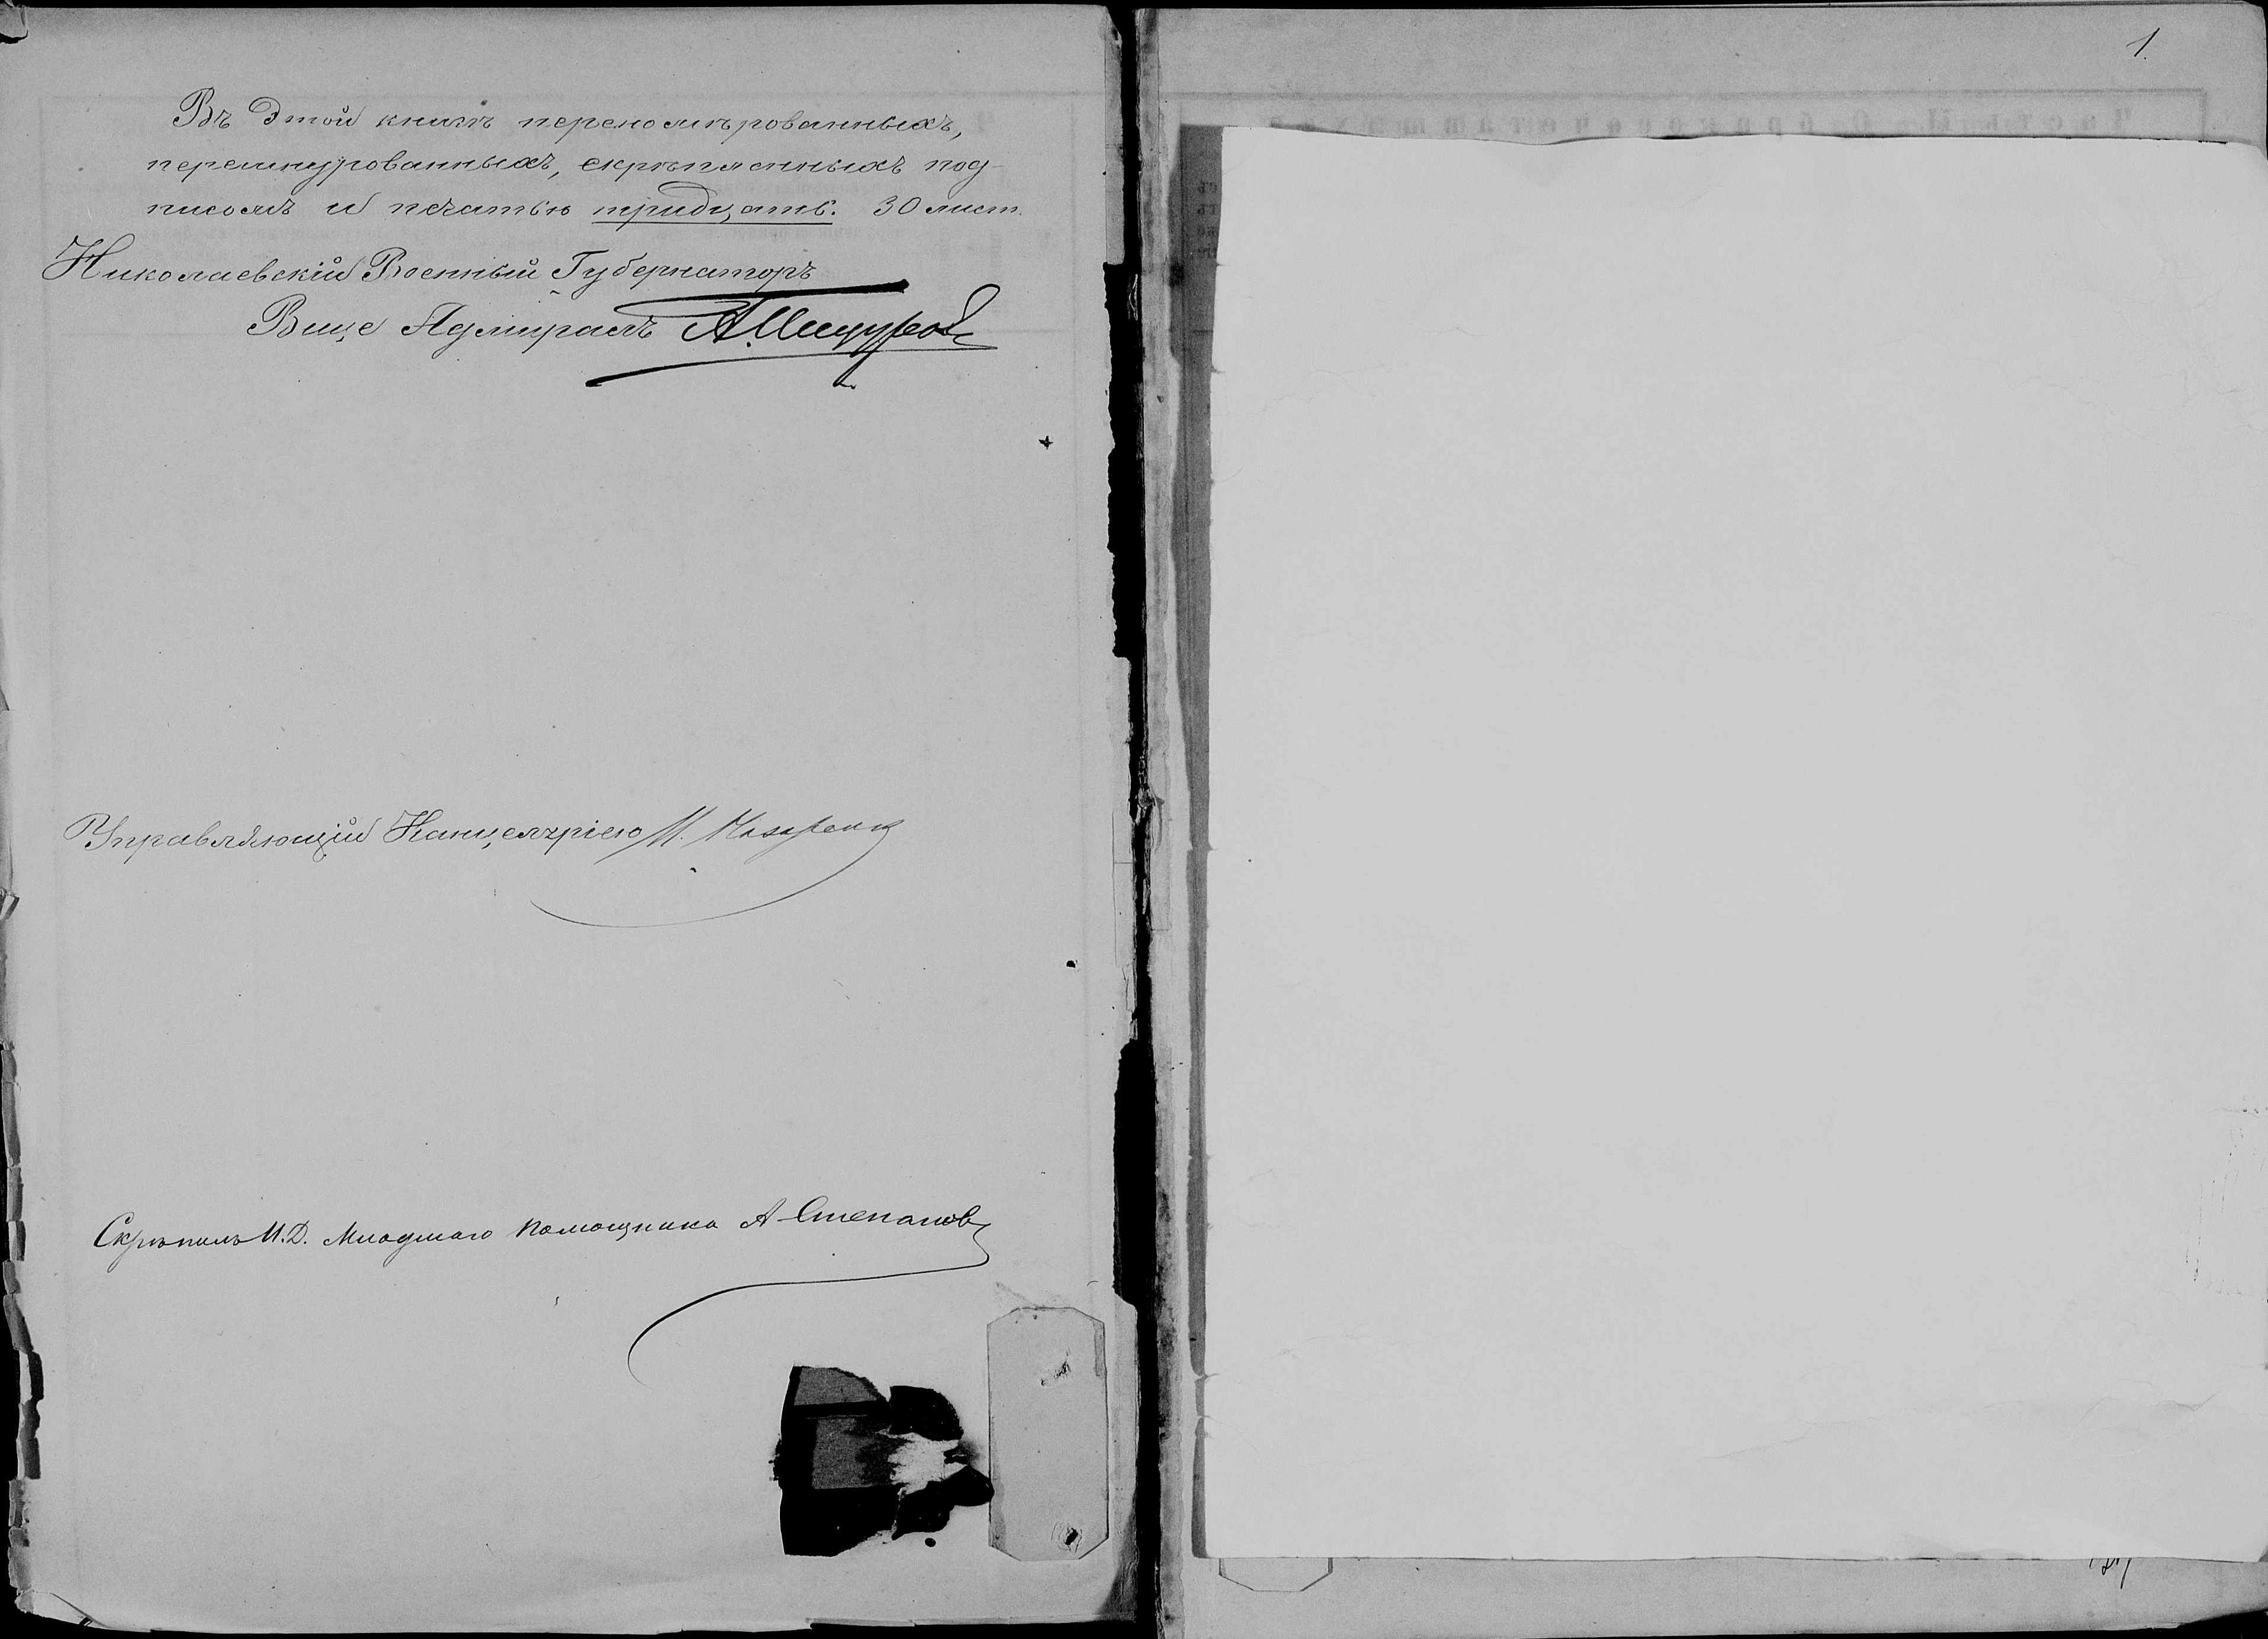 Въ Этой книгѣ перенумѣрованныхъ,
перешнурованныхъ, скрѣпленныхъ под-
писомъ и печатью тридцать. 30 лист.
Николаевскій Военный Губернаторъ
Вице Адмиралъ А. Пещуровъ
Управляющій Канцеляріею
Скрѣпилъ И.Д. Младшаго Помощника А Степановъ
1.